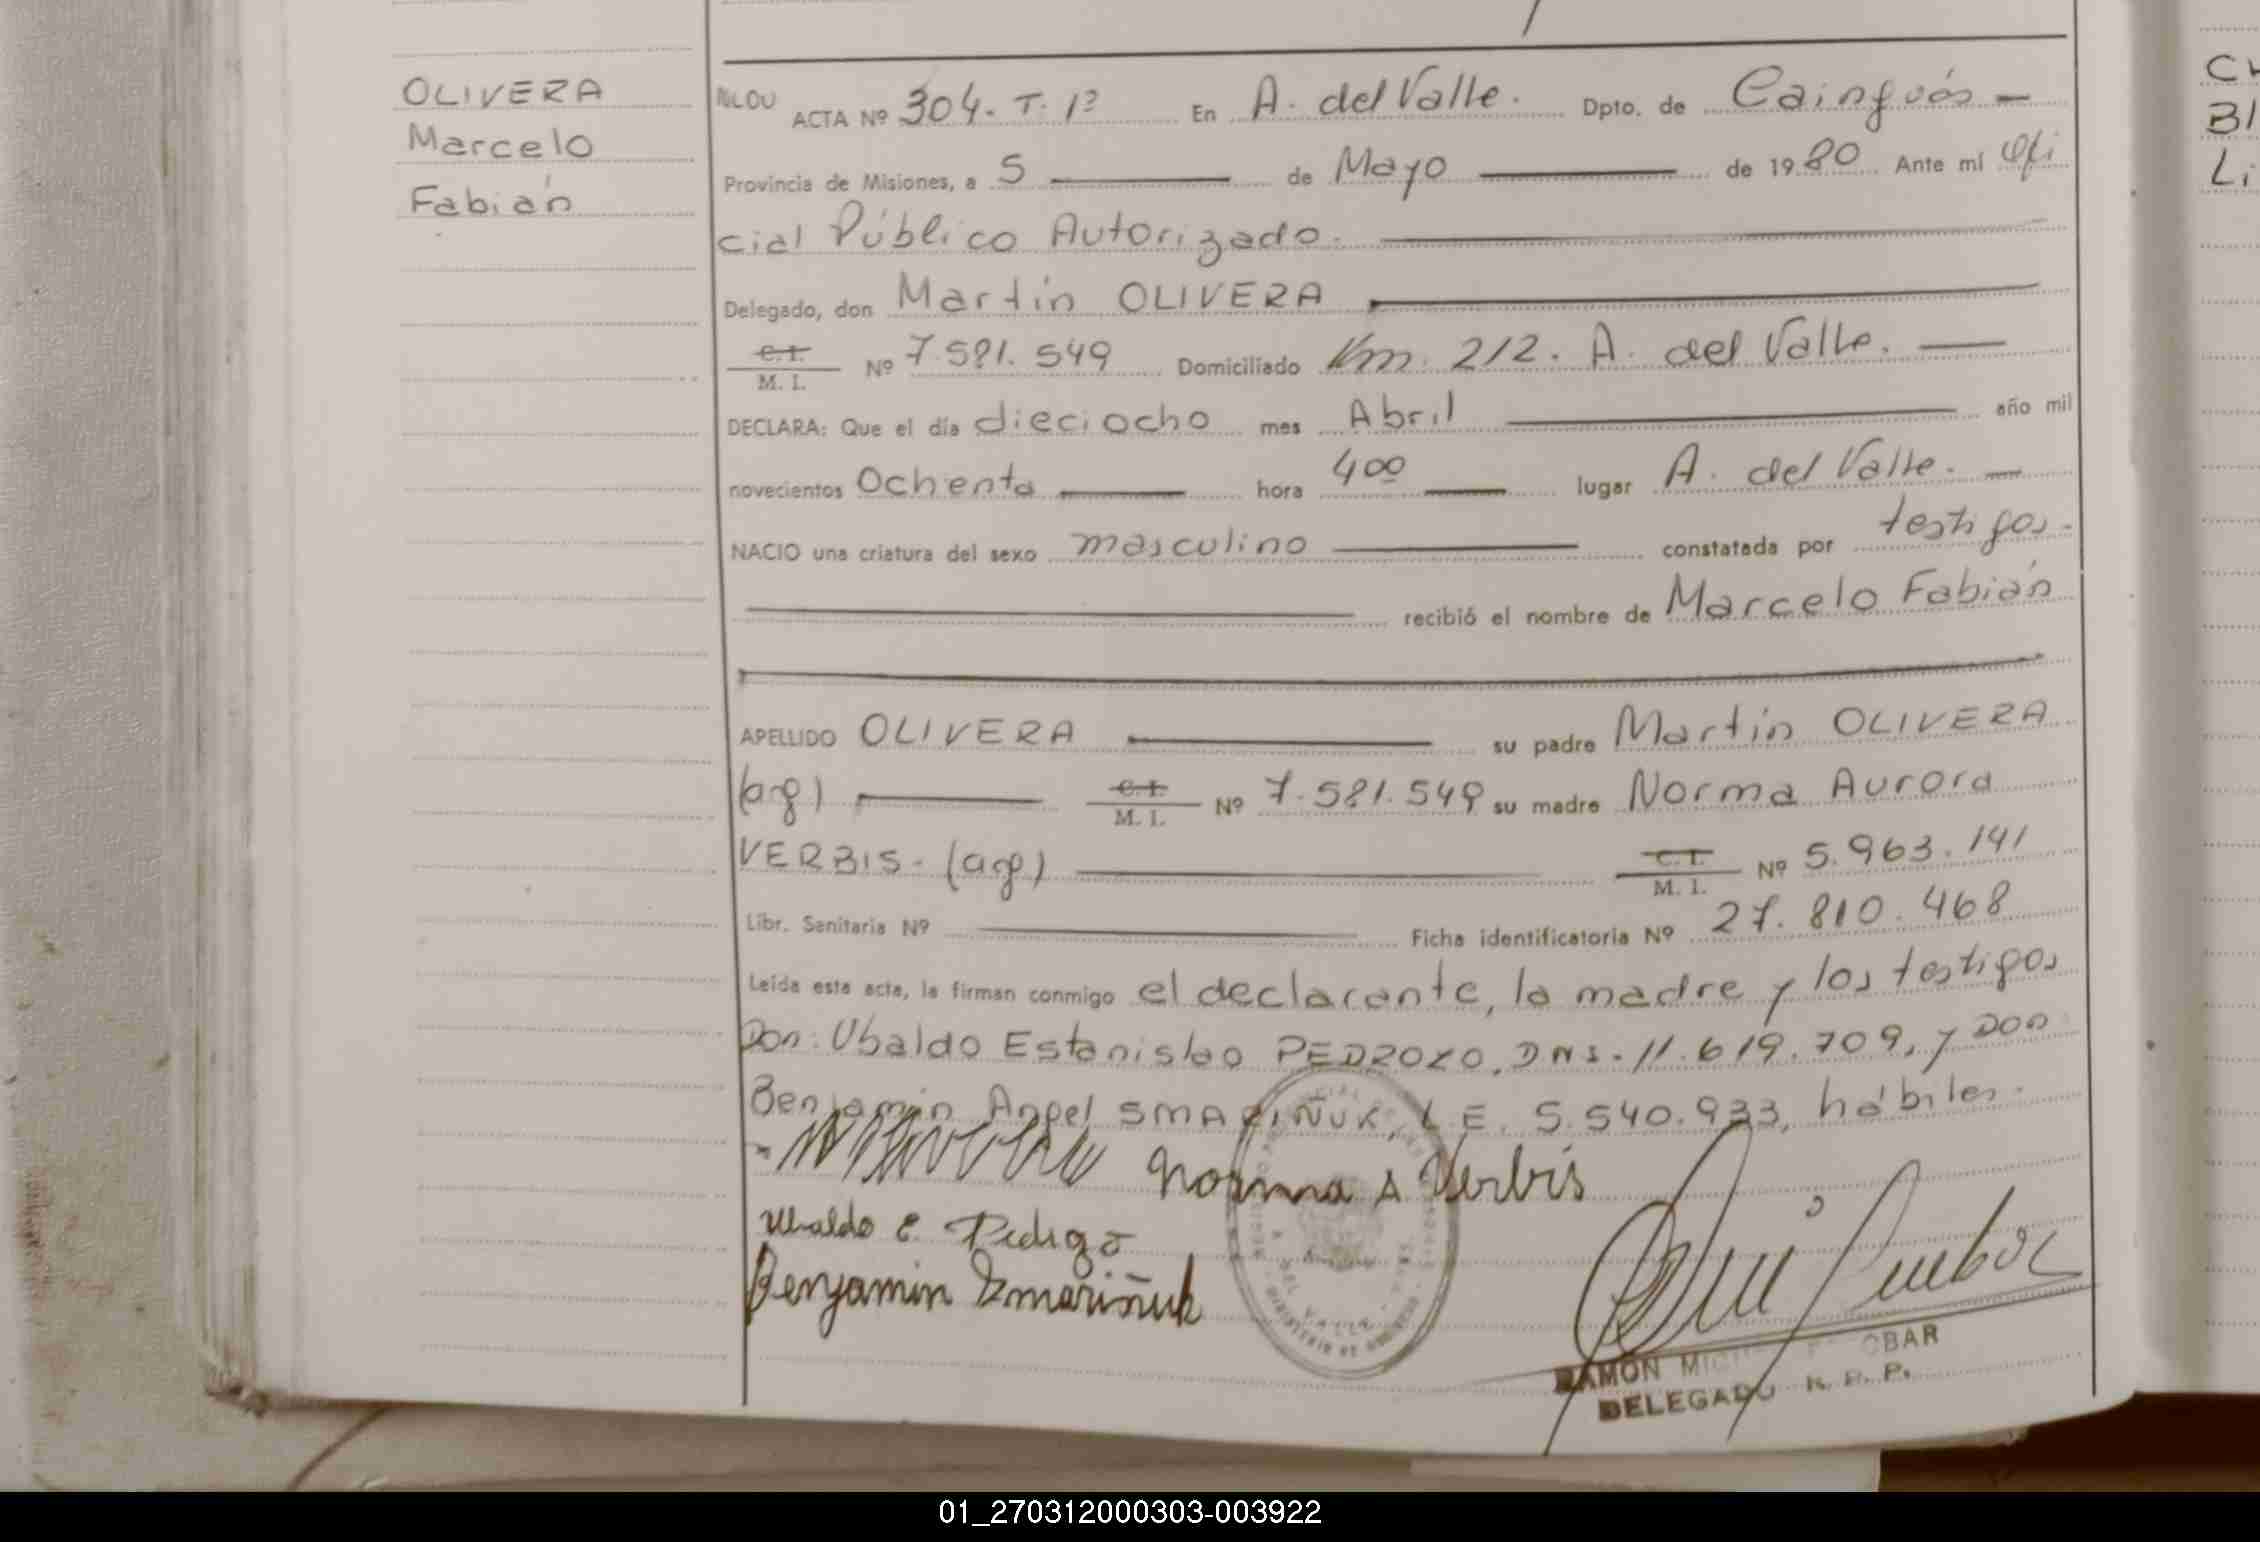 OLIVERA
Marcelo
Fabián
ACTA Nº 304. T. 1º En A. del Valle. Dpto. de Cainguás
Provincia de Misiones, a 5 de Mayo de 1980 Ante mí Ofi
cial Público Autorizado.
Delegado, don Martín OLIVERA
C. I.
M. I. Nº 7.581.549 Domiciliado Km. 212. A. del Valle.
DECLARA: Que el día dieciocho mes Abril año mil
novecientos Ochenta hora 4 00 lugar A. del Valle.
NACIO una criatura del sexo masculino constatada por testigos.
recibió el nombre de Marcelo Fabián
APELLIDO OLIVERA su padre Martín OLIVERA
(arg) C. I.
M. I. Nº 7.581.549 su madre Norma Aurora
VERBIS. (arg) C. I.
M. I. Nº 5.963.141
Libr. Sanitaria Nº Ficha identificatoria Nº 27.810.468
Leída esta acta, la firman conmigo el declarante, la madre y los testigos
Don: Ubaldo Estanislao PEDROZO. DNI. 11.619.709, y Don
Benjamín Angel SMARIÑUK, L.E. 5.540.933, hábiles.
Norma A Verbis
Ubaldo E.
Benjamin Zmariñuk
RAMON OBAR
DELEGADO R. P. P.
CH
BI
Li
01_270312000303-003922